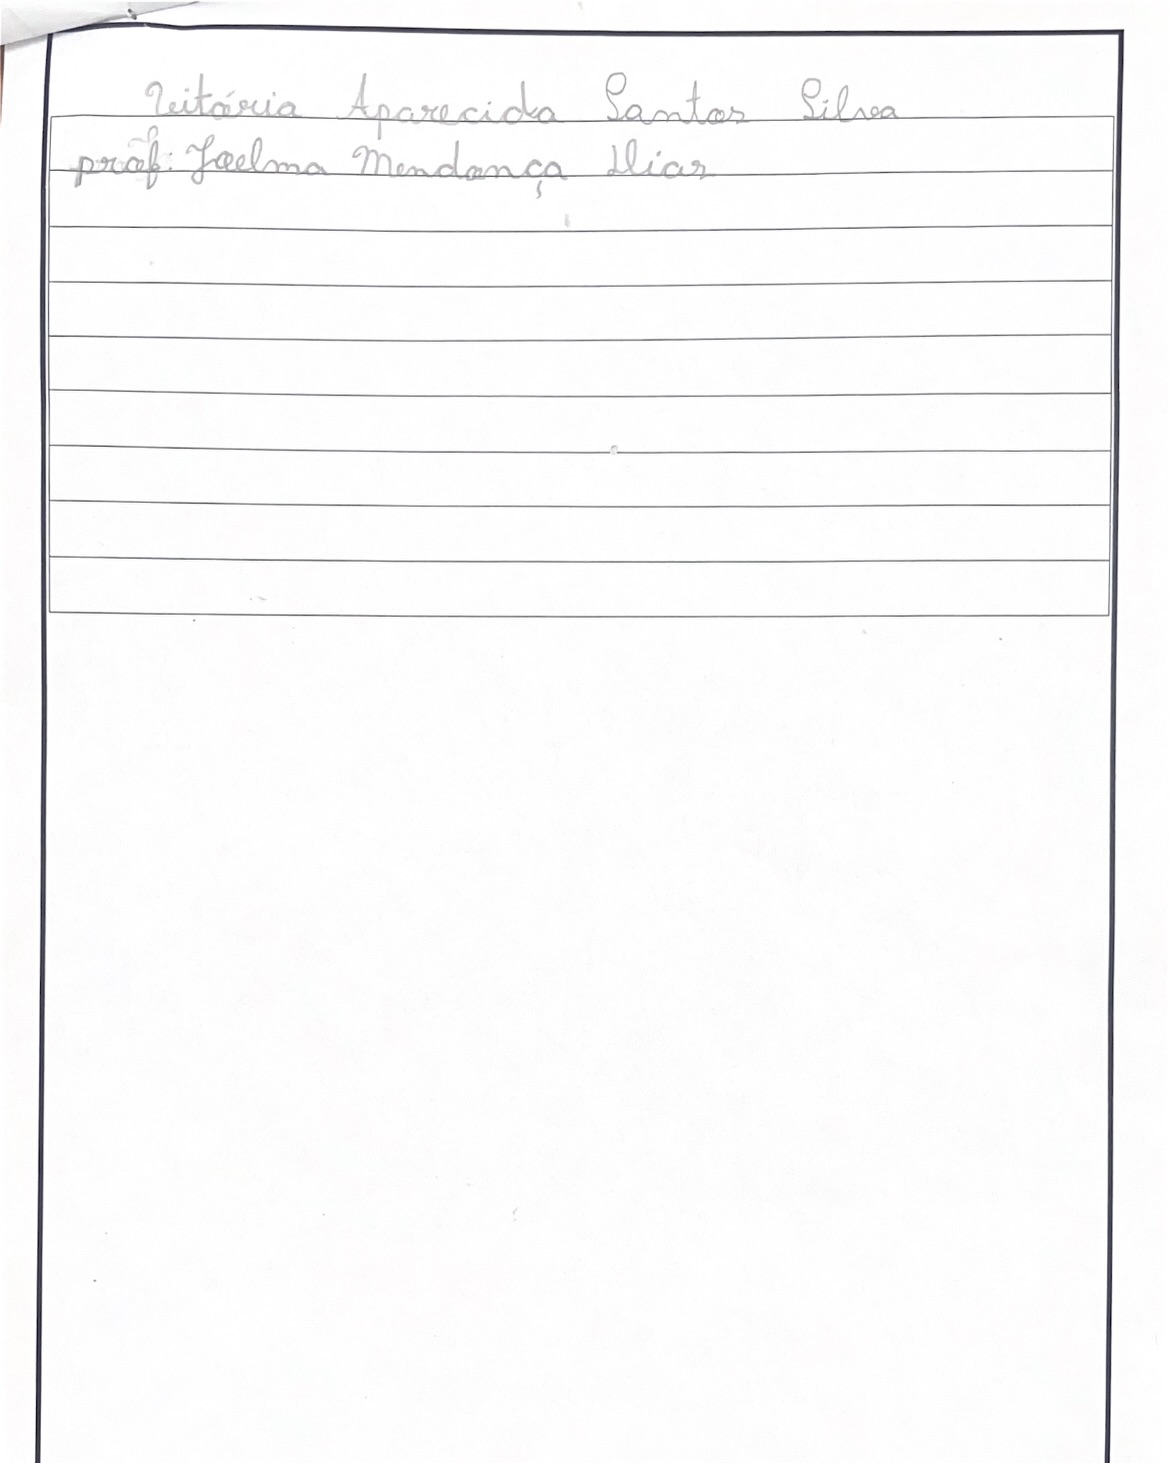 Vitória Aparecida Santos Silva
prof: Joelma Mendonça Dias